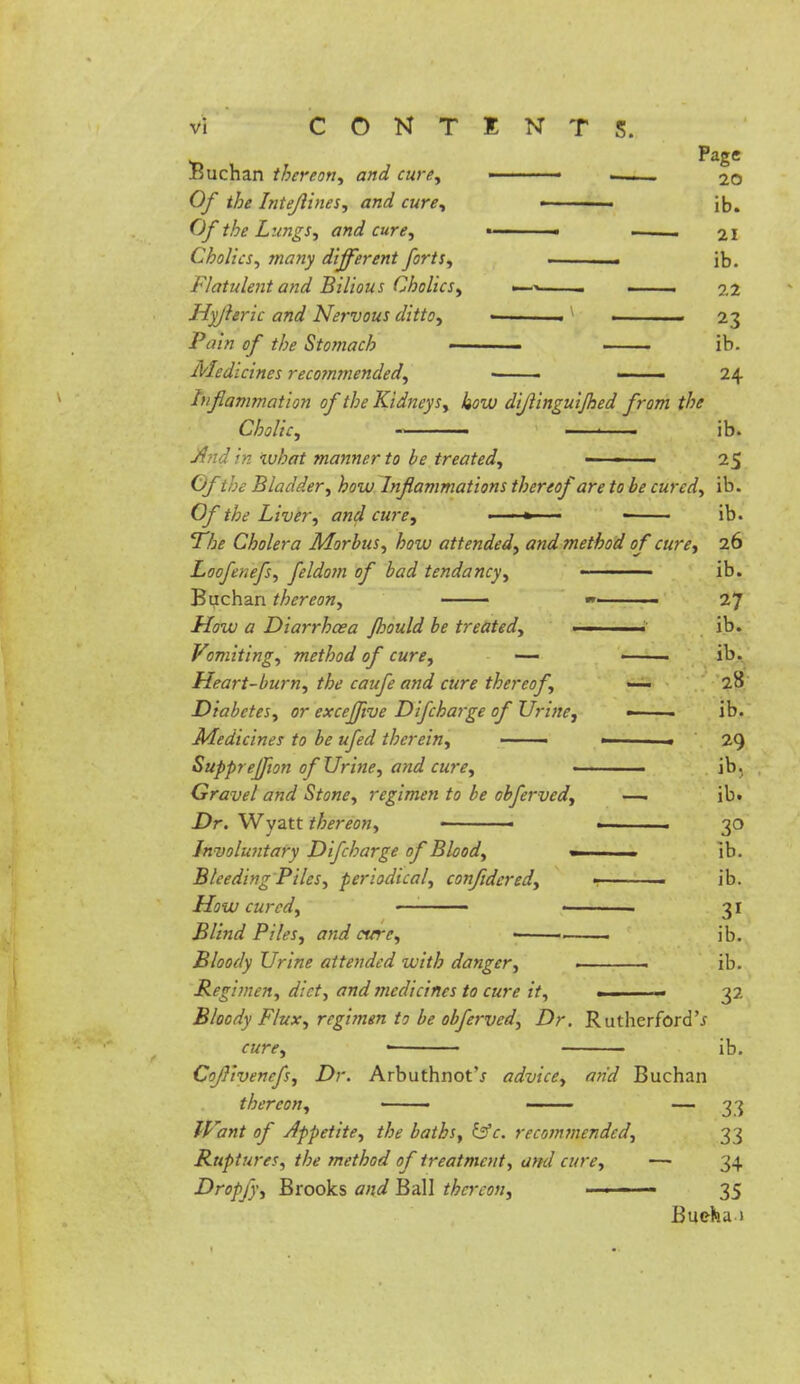 vi CONTENTS.
Page
Buchan thereon, and cure, —— —— 20
Of the Inteſtines, and cure, —— ib.
Of the Lungs, and cure, —— —— 21
Cholics, many different ſorts, —— ib.
Flatulent and Bilious Cholics, —— —— 22
Hyſteric and Nervous ditto, —— —— 23
Pain of the Stomach —— —— ib.
Medicines recommended, —— —— 24
Inflammation of the Kidneys, how diſtinguiſhed from the
Cholic, —— —— ib.
And in what manner to be treated, —— 25
Of the Bladder, how Inflammations thereof are to be cured, ib.
Of the Liver, and cure, —— —— ib.
The Cholera Morbus, how attended, and method of cure, 26
Looſeneſs, ſeldom of bad tendancy, —— ib.
Buchan thereon, —— —— 27
How a Diarrhœa ſhould be treated, —— ib.
Vomiting, method of cure, — —— ib.
Heart-burn, the cauſe and cure thereof, — 28
Diabetes, or exceſſive Diſcharge of Urine, —— ib.
Medicines to be uſed therein, —— —— 29
Suppreſſion of Urine, and cure, —— ib.
Gravel and Stone, regimen to be obſerved, — ib.
Dr. Wyatt thereon, —— —— 30
Involuntary Diſcharge of Blood, —— ib.
Bleeding Piles, periodical, conſidered, —— ib.
How cured, —— —— 31
Blind Piles, and cure, —— ib.
Bloody Urine attended with danger, —— ib.
Regimen, diet, and medicines to cure it, —— 32
Bloody Flux, regimen to be obſerved, Dr. Rutherford's
cure, —— —— ib.
Coſtiveneſs, Dr. Arbuthnot's advice, and Buchan
thereon, —— —— — 33
Want of Appetite, the baths, &c. recommended, 33
Ruptures, the method of treatment, and cure, — 34
Dropſy, Brooks and Ball thereon, —— 35
Buchan